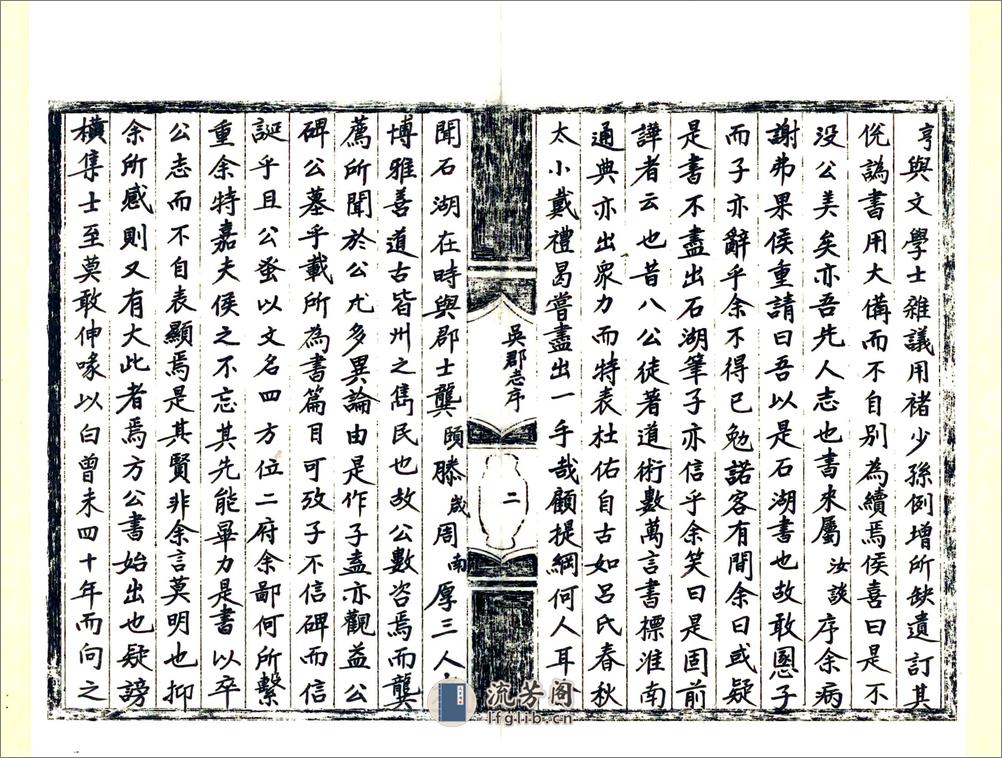 亨與文學士雜議用褚少孫例增所缺遺訂其
侻譌書用大備而不自別為續焉侯喜曰是不
没公美矣亦吾先人志也書來屬汝談序余病
謝弗果侯重請曰吾以是石湖書也故敢圂子
而子亦辭乎余不得已勉諾客有間余曰或疑
是書不盡出石湖筆子亦信乎余笑曰是固前
譁者云也昔八公徒著道術數萬言書標淮南
通典亦出衆力而特表杜佑自古如呂氏春秋
太小戴禮曷嘗盡出一手哉顧提綱何人耳余
吳郡志序
二
聞石湖在時與郡士龔頤滕宬周南厚三人
博雅善道古皆州之雋民也故公數咨焉而龔
薦所聞於公尤多異論由是作子盍亦觀益公
碑公墓乎載所為書篇目可攷子不信碑而信
誕乎且公蚤以文名四方位二府余鄙何所繫
重余特嘉夫侯之不忘其先能畢力是書以卒
公志而不自表顯焉是其賢非余言莫明也抑
余所感則又有大此者焉方公書始出也疑謗
橫集士至莫敢伸喙以白曾未四十年而向之
流芳閣
lfglib.cn